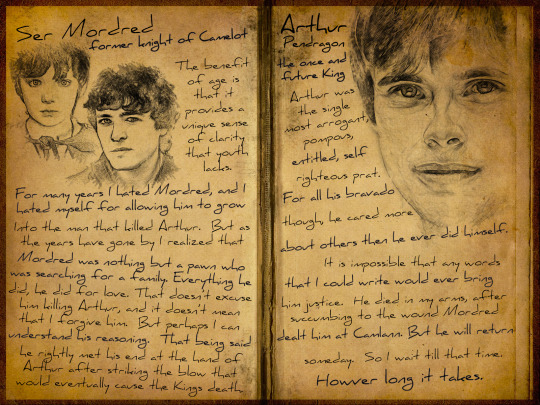 Ser Mordred
former knight of Camelot
The benefit
of age is
that it
provides a
unique sense
of clarity
that youth
lacks.
For many years I hated Mordred, and I
hated myself for allowing him to grow
into the man that killed Arthur. But as
the years have gone by I realized that
Mordred was nothing but a pawn who
was searching for a family. Everything he
did, he did for love. That doesn't excuse
him killing Arthur, and it doesn't mean
that I forgive him. But perhaps I can
understand his reasoning. That being said
he rightly met his end at the hand of
Arthur after striking the blow that
would eventually cause the Kings death.
Arthur
Pendragon
the once and
future King
Arthur was
the single
most arrogant,
pompous,
entitled, self
righteous prat.
For all his bravado
though, he cared more
about others then he ever did himself.
It is impossible that any words
that I could write would ever bring
him justice. He died in my arms, after
succumbing to the wound Mordred
dealt him at Camlann. But he will return
someday. So I wait till that time.
Howver long it takes.